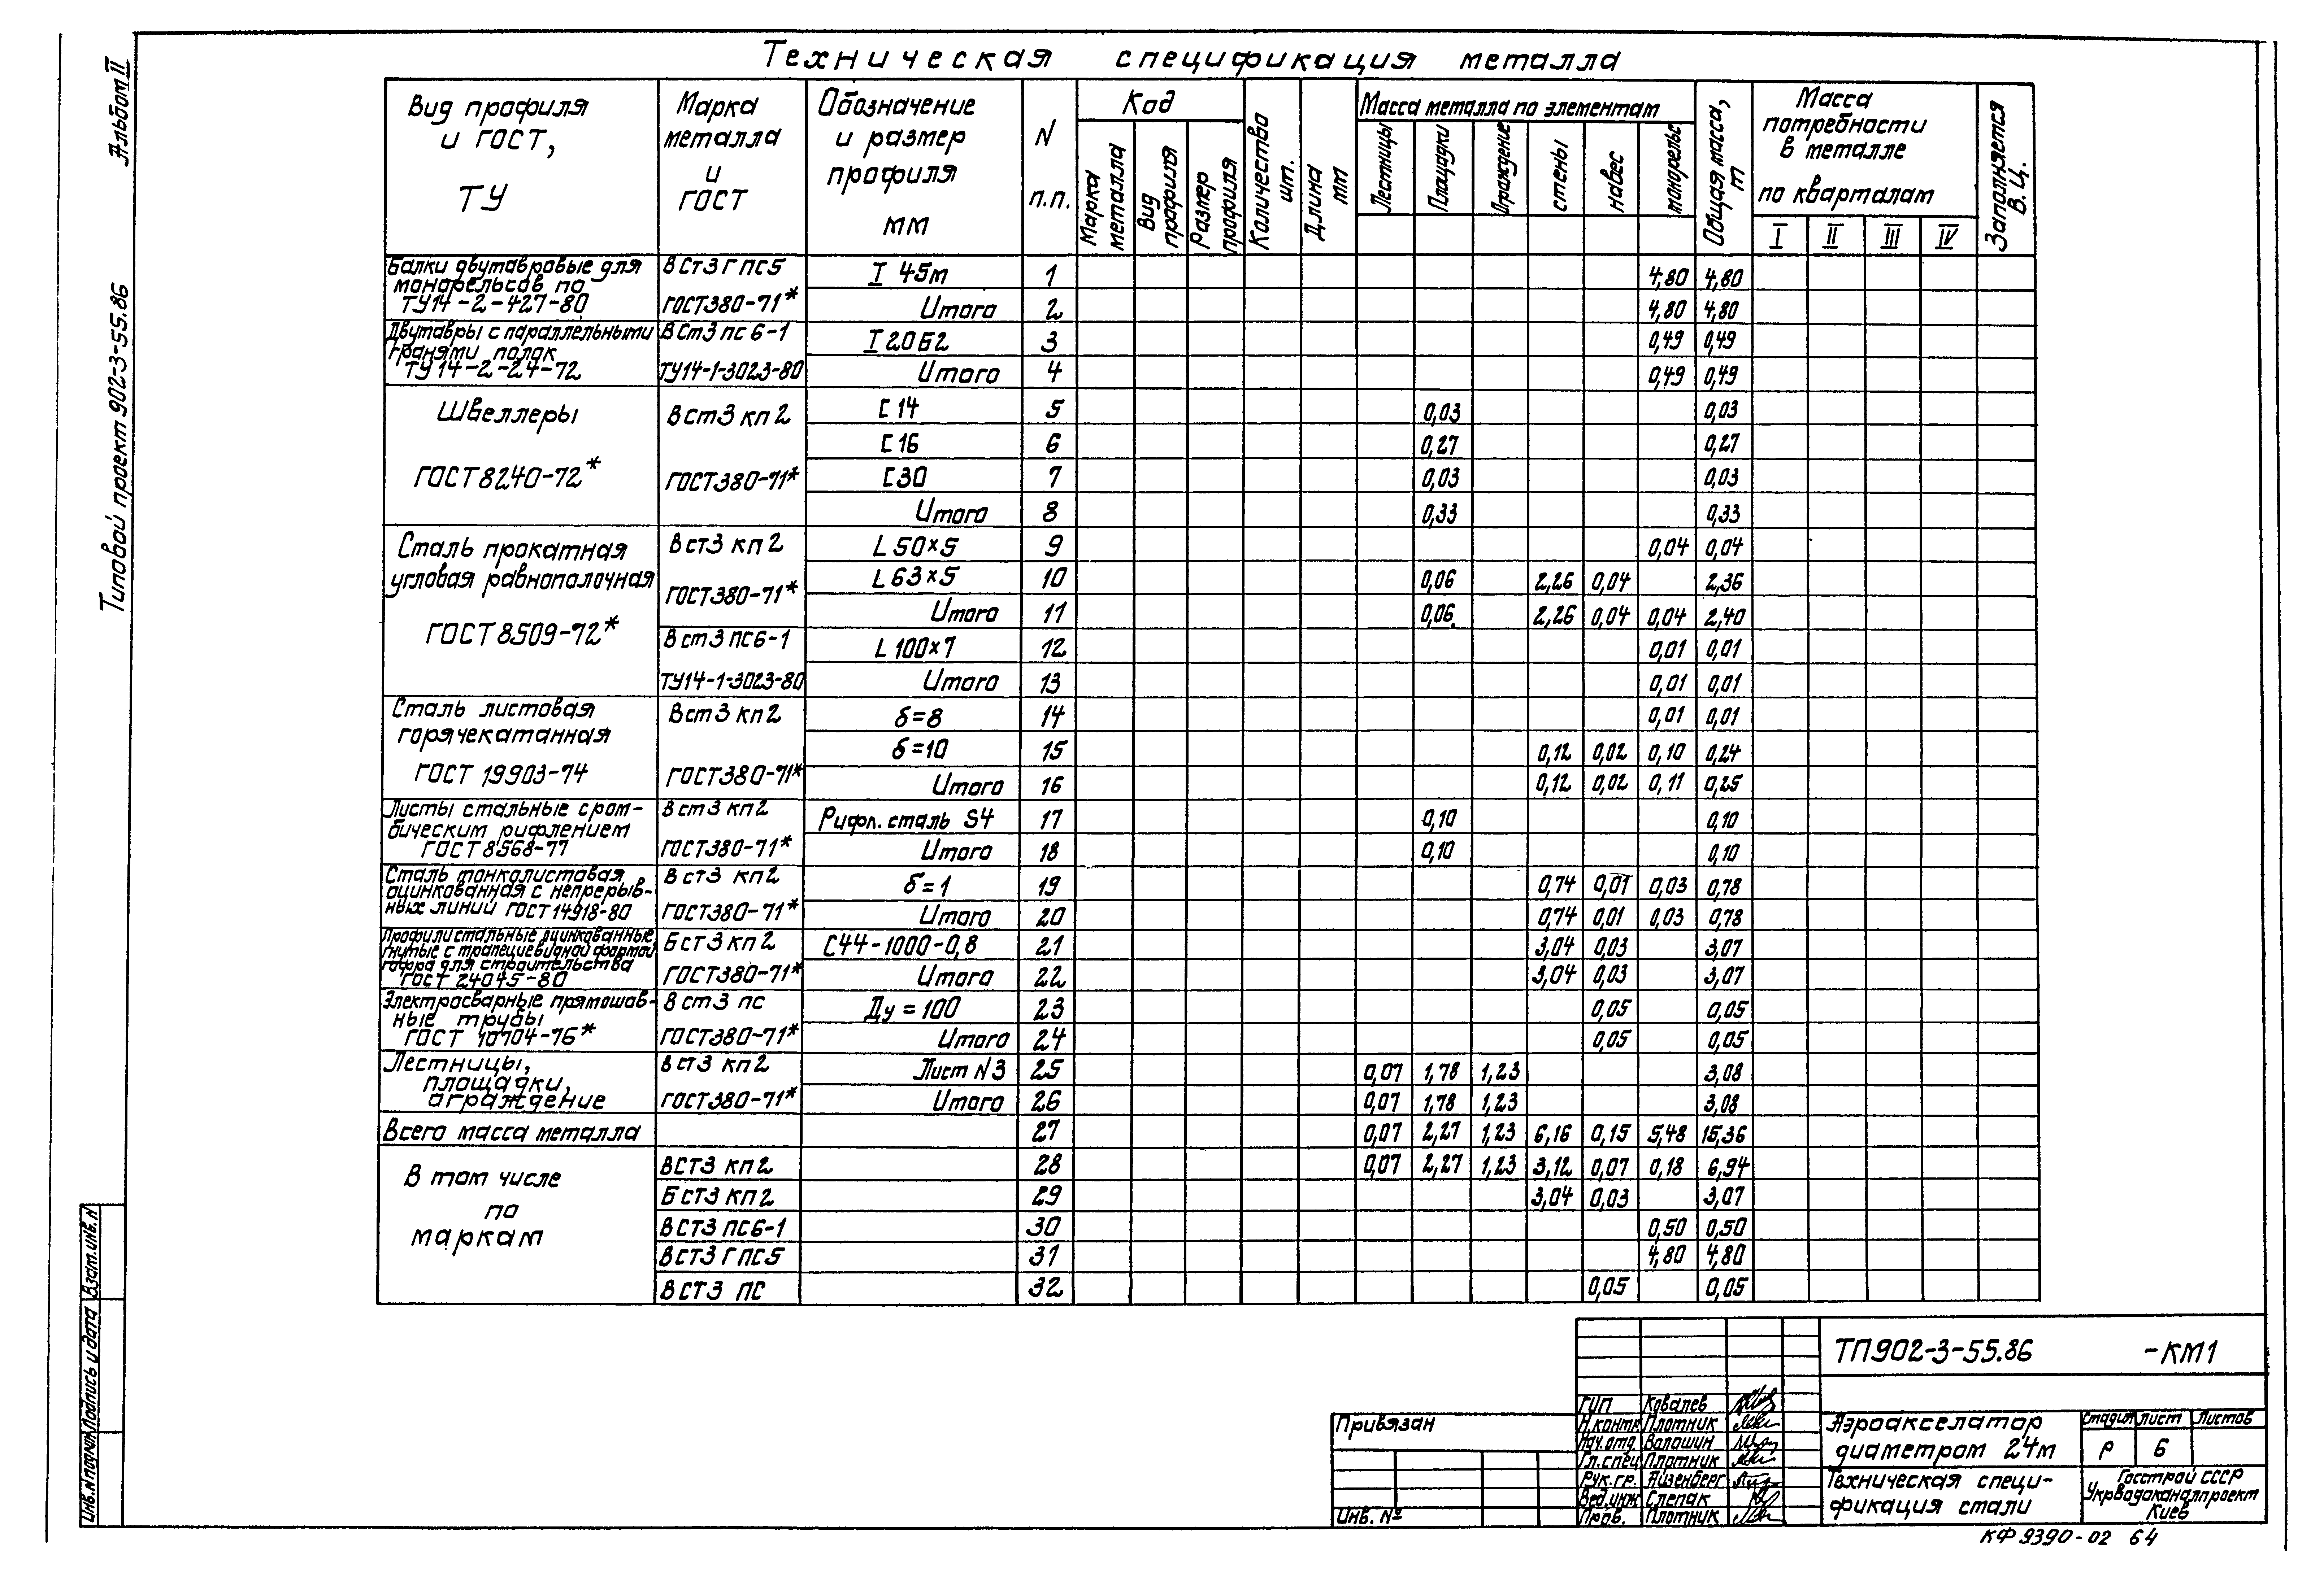 Техническая спецификация металла
Альбом II
Типовой проект 902-3-55.86
Вид профиля и ГОСТ, ТУ
Марка металла и ГОСТ
Обозначение и размер профиля мм
N п.п.
Код
Марка металла
Вид профиля
Размер профиля
Количество шт.
Длина мм
Масса металла по элементам
Лестницы
Площадки
Ограждение
стены
навес
монорельс
Общая масса, т
Масса потребности в металле по кварталам
I II III IV
Заполняется В.Ц.
Балки двутавровые для монорельсов по ТУ14-2-427-80
ВСт3Гпс5 ГОСТ380-71*
I 45м 1 4,80 4,80
Итого 2 4,80 4,80
Двутавры с параллельными гранями полок ТУ14-2-24-72
ВСт3пс6-1 ТУ14-1-3023-80
I 20Б2 3 0,49 0,49
Итого 4 0,49 0,49
Швеллеры ГОСТ8240-72*
ВСт3кп2 ГОСТ380-71*
С14 5 0,03 0,03
С16 6 0,27 0,27
С30 7 0,03 0,03
Итого 8 0,33 0,33
Сталь прокатная угловая равнополочная ГОСТ8509-72*
ВСт3кп2 ГОСТ380-71*
L50×5 9 0,04 0,04
L63×5 10 0,06 2,26 0,04 2,36
Итого 11 0,06 2,26 0,04 0,04 2,40
ВСт3пс6-1 ТУ14-1-3023-80
L100×7 12 0,01 0,01
Итого 13 0,01 0,01
Сталь листовая горячекатанная ГОСТ 19903-74
ВСт3кп2 ГОСТ380-71*
δ=8 14 0,01 0,01
δ=10 15 0,12 0,02 0,10 0,24
Итого 16 0,12 0,02 0,11 0,25
Листы стальные с ромбическим рифлением ГОСТ8568-77
ВСт3кп2 ГОСТ380-71*
Рифл. сталь S4 17 0,10 0,10
Итого 18 0,10 0,10
Сталь тонколистовая оцинкованная с непрерывных линий ГОСТ14918-80
ВСт3кп2 ГОСТ380-71*
δ=1 19 0,74 0,01 0,03 0,78
Итого 20 0,74 0,01 0,03 0,78
Профили стальные оцинкованные гнутые с трапециевидной формой гофра для строительства ГОСТ 24045-80
БСт3кп2 ГОСТ380-71*
С44-1000-0,8 21 3,04 0,03 3,07
Итого 22 3,04 0,03 3,07
Электросварные прямошовные трубы ГОСТ 10704-76*
ВСт3пс ГОСТ380-71*
Ду=100 23 0,05 0,05
Итого 24 0,05 0,05
Лестницы, площадки, ограждение
ВСт3кп2 ГОСТ380-71*
Лист N3 25 0,07 1,78 1,23 3,08
Итого 26 0,07 1,78 1,23 3,08
Всего масса металла 27 0,07 2,27 1,23 6,16 0,15 5,48 15,36
В том числе по маркам
ВСт3кп2 28 0,07 2,27 1,23 3,12 0,07 0,18 6,94
БСт3кп2 29 3,04 0,03 3,07
ВСт3пс6-1 30 0,50 0,50
ВСт3Гпс5 31 4,80 4,80
ВСт3пс 32 0,05 0,05
Инв.N подл. Подпись и дата Взам.инв.N
Привязан
Инв. №
ГИП Ковалев
Н.контр. Плотник
Нач.отд. Валашин
Гл.спец. Плотник
Рук.гр. Айзенберг
Вед.инж. Слепак
Пров. Плотник
ТП902-3-55.86 -КМ1
Аэроакселатор диаметром 24м
Стадия Лист Листов
Р 6
Техническая спецификация стали
Госстрой СССР
Укрводоканалпроект
Киев
КФ 9390-02 64